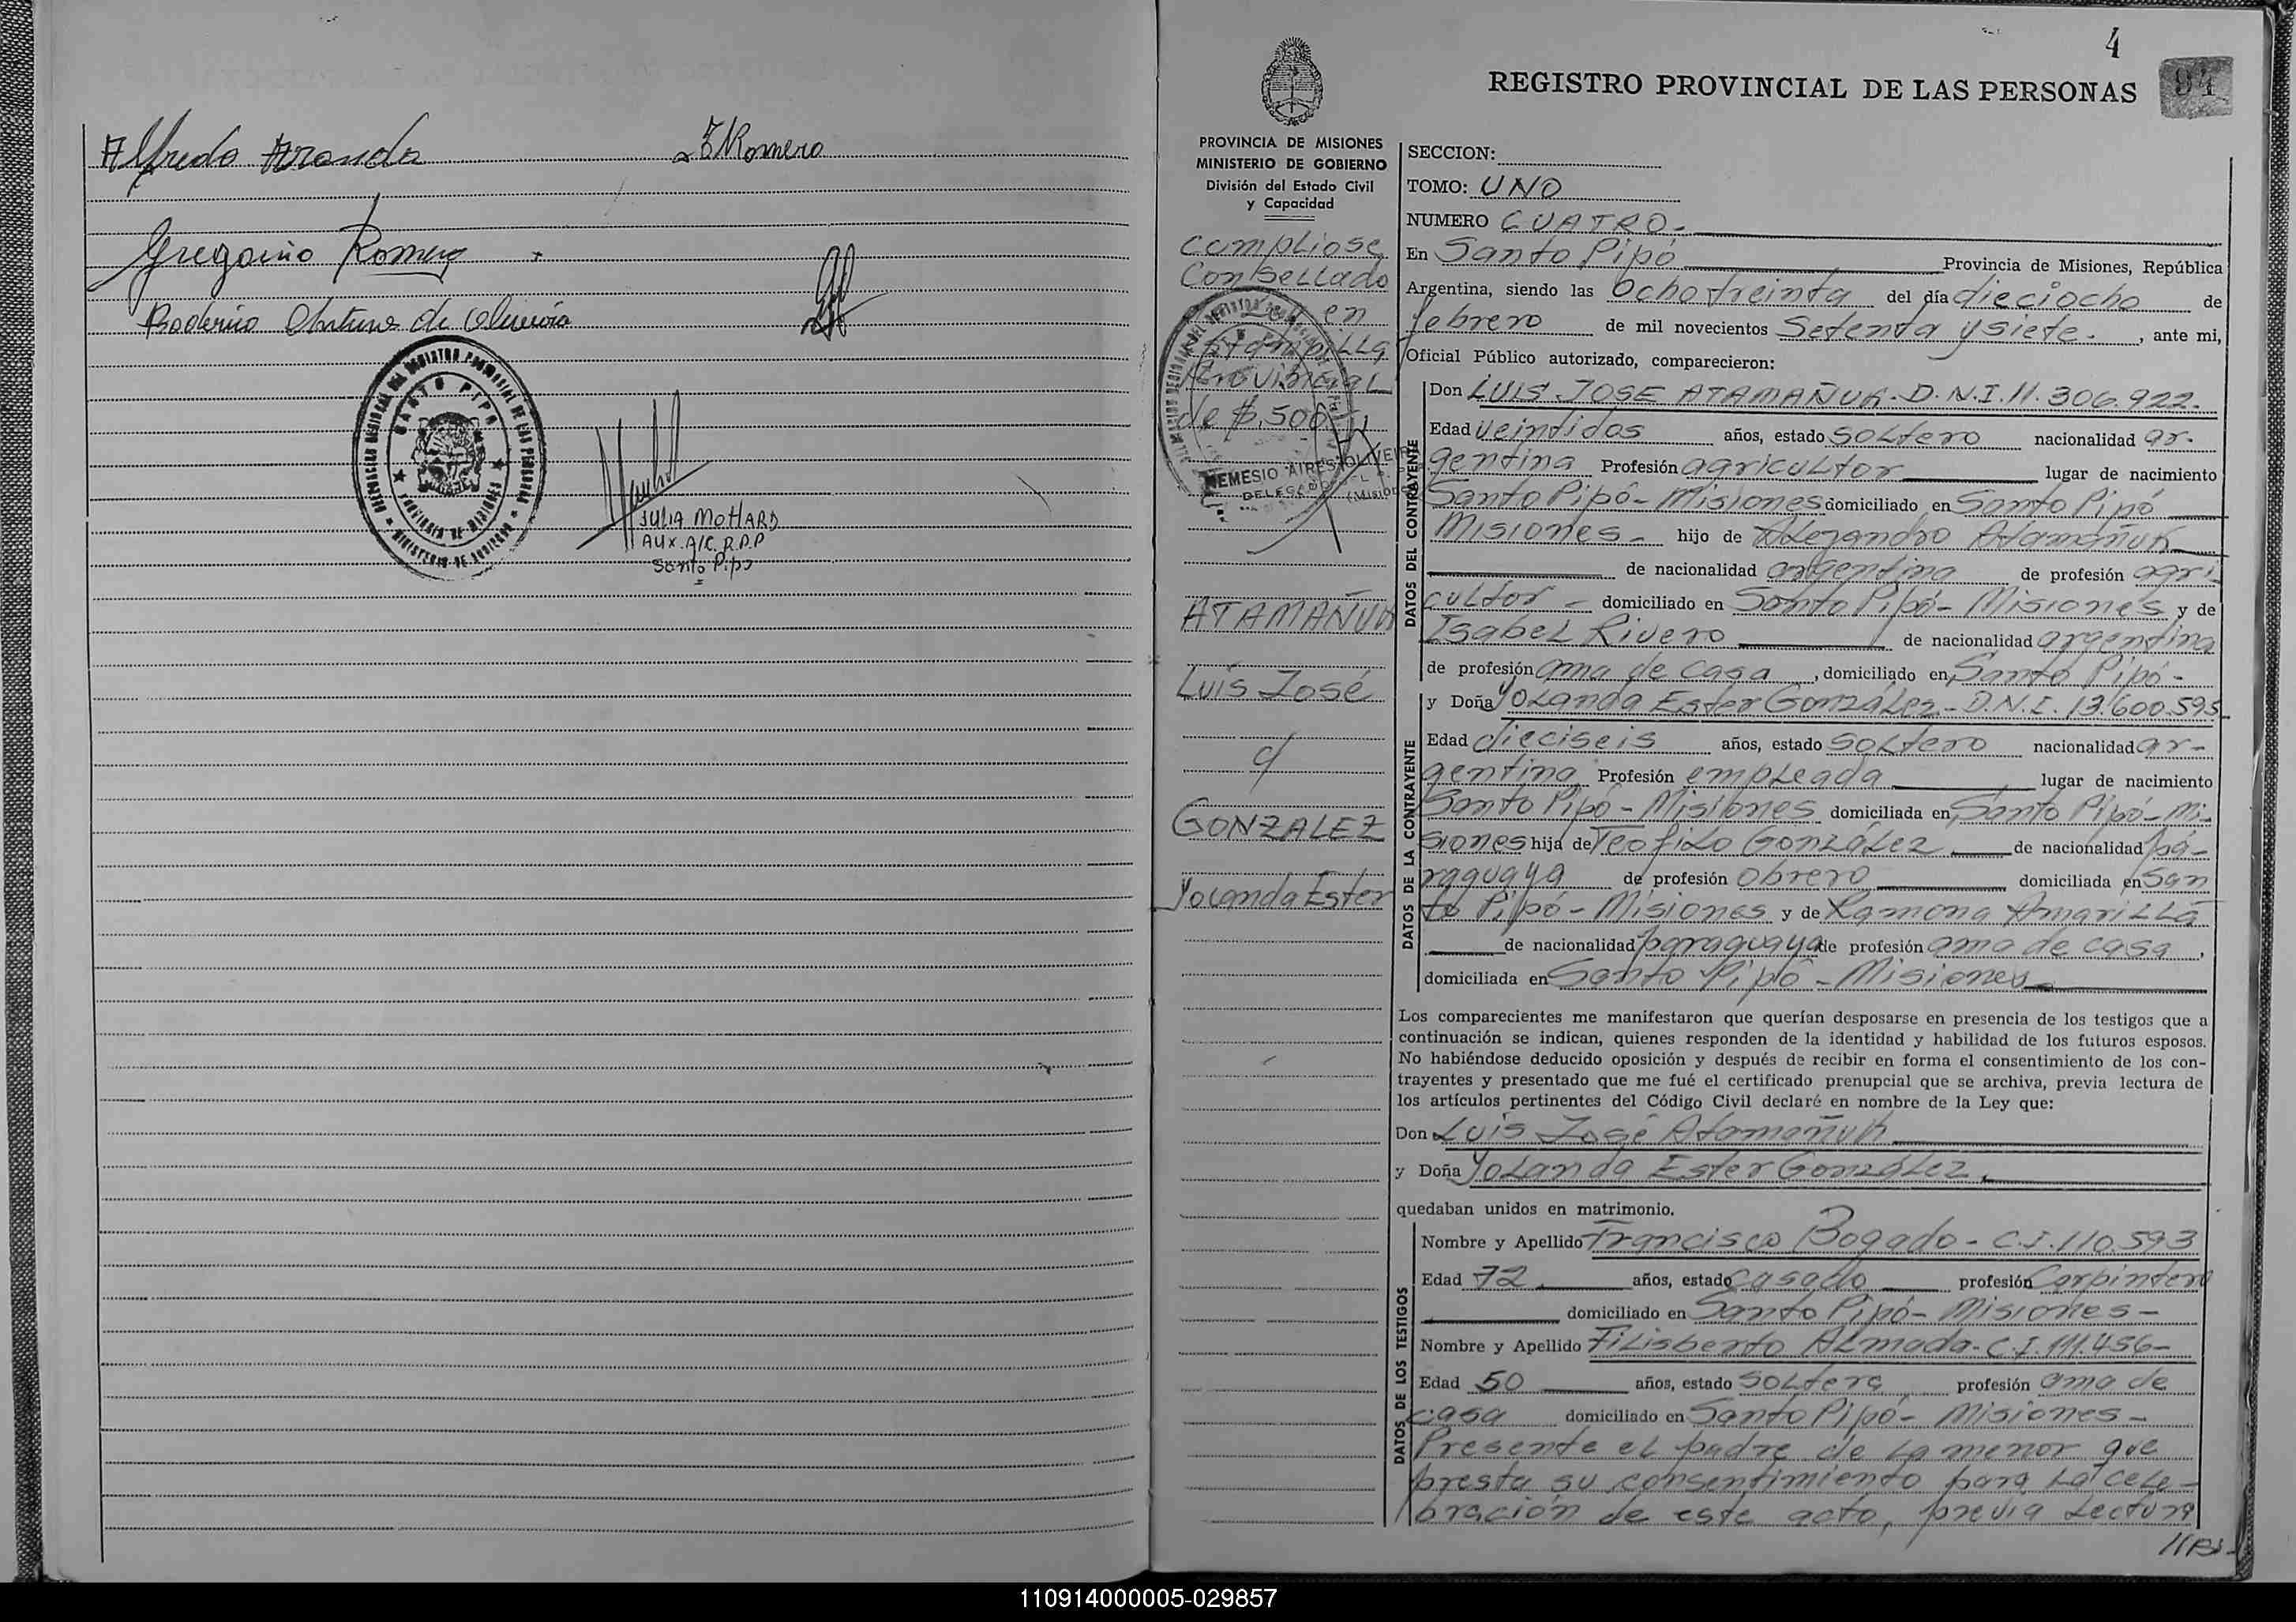 Alfredo Aranda
Romero
Gregorio Romero
Julia Mohard
Aux. A/C. R.P.P
Santo Pipó
SANTO PIPO
4
94
REGISTRO PROVINCIAL DE LAS PERSONAS
PROVINCIA DE MISIONES
MINISTERIO DE GOBIERNO
División del Estado Civil
y Capacidad
Cumpliose
Con Sellado
en
Estampilla
Provincial
de $.500
NEMESIO AIRES OLIVEIRA
DELEGADO
ATAMAÑUK
Luis José
c/
GONZALEZ
Yolanda Ester
SECCION:
TOMO: UNO
NUMERO CUATRO.-
En Santo Pipó Provincia de Misiones, República
Argentina, siendo las Ocho treinta del día dieciocho de
febrero de mil novecientos Setenta y siete.-, ante mi,
Oficial Público autorizado, comparecieron:
DATOS DEL CONTRAYENTE
Don LUIS JOSE ATAMAÑUK-D.N.I.11.306.922-
Edad veintidos años, estado soltero nacionalidad ar-
gentina Profesión agricultor lugar de nacimiento
Santo Pipó-Misiones domiciliado en Santo Pipó
Misiones- hijo de Alejandro Atamañuk
de nacionalidad argentina de profesión agri-
cultor - domiciliado en Santo Pipó-Misiones y de
Isabel Rivero de nacionalidad argentina
de profesión ama de casa, domiciliado en Santo Pipó-
DATOS DE LA CONTRAYENTE
y Doña Yolanda Ester González-D.N.I. 13.600.595
Edad dieciseis años, estado soltero nacionalidad ar-
gentina Profesión empleada lugar de nacimiento
Santo Pipó-Misiones domiciliada en Santo Pipó-Mi-
siones hija de Teofilo González de nacionalidad pa-
raguaya de profesión obrero domiciliada en San
to Pipó-Misiones y de Ramona Amarilla
de nacionalidad paraguaya de profesión ama de casa,
domiciliada en Santo Pipó-Misiones
Los comparecientes me manifestaron que querían desposarse en presencia de los testigos que a
continuación se indican, quienes responden de la identidad y habilidad de los futuros esposos.
No habiéndose deducido oposición y después de recibir en forma el consentimiento de los con-
trayentes y presentado que me fué el certificado prenupcial que se archiva, previa lectura de
los artículos pertinentes del Código Civil declaré en nombre de la Ley que:
Don Luis José Atamañuk
y Doña Yolanda Ester González.
quedaban unidos en matrimonio.
DATOS DE LOS TESTIGOS
Nombre y Apellido Francisco Bogado-C.I.110.593
Edad 72 años, estado casado profesión Carpintero
domiciliado en Santo Pipó-Misiones-
Nombre y Apellido Filisberto Almada-C.I.111.456-
Edad 50 años, estado soltera profesión ama de
casa domiciliado en Santo Pipó-Misiones-
Presente el padre de la menor que
presta su consentimiento para la cele-
bración de este acto, previa lectura
110914000005-029857